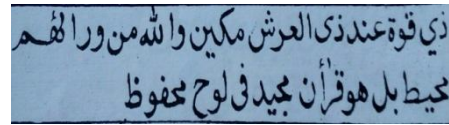 ذي قوة عند ذى العرش مكين والله من ورائهم
محيط بل هو قرأن مجيد فى لوح محفوظ